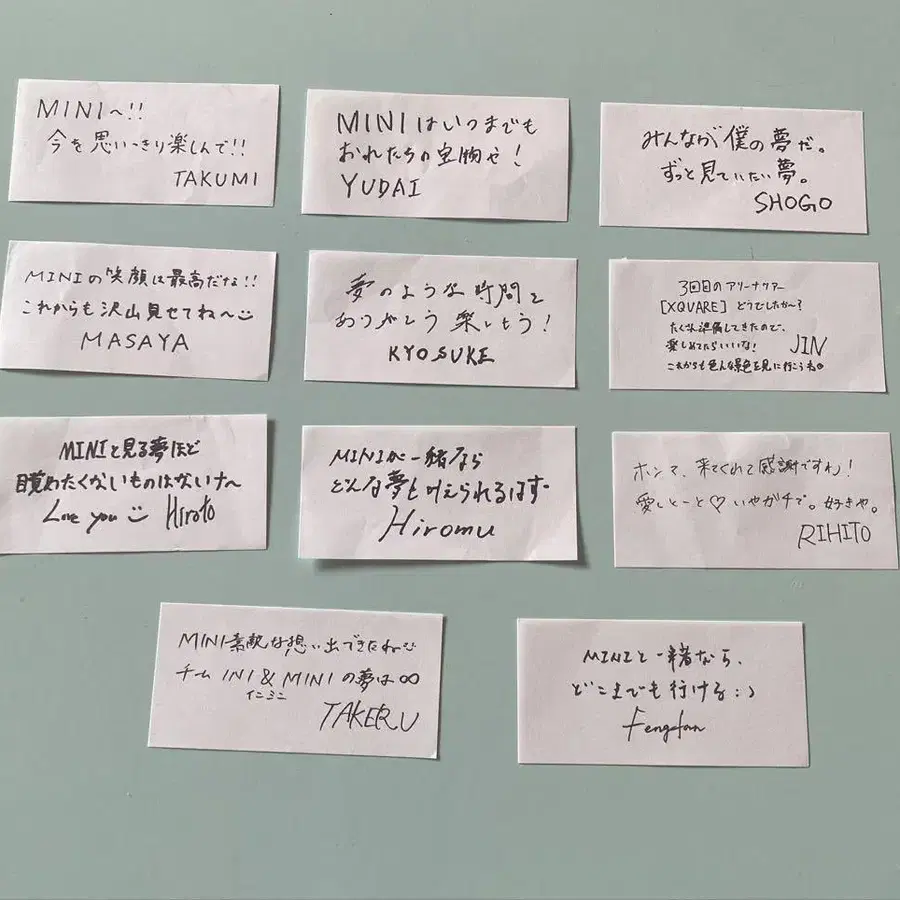 MINI〜!!
今を思いっきり楽しんで!!
TAKUMI
MINIはいつまでも
おれたちの宝物や!
YUDAI
みんなが僕の夢だ。
ずっと見ていたい夢。
SHOGO
MINIの笑顔は最高だな!!
これからも沢山見せてね〜
MASAYA
夢のような時間を
ありがとう 楽しもう!
KYOSUKE
3回目のアリーナツアー
[XQUARE] どうでしたか〜?
たくさん準備してきたので、
楽しめてたらいいな!
JIN
これからも色んな景色を見に行こうね
MINIと見る夢ほど
覚めたくないものはないナ〜
Love you Hiroto
MINIが一緒なら
どんな夢も叶えられるはず
Hiromu
ホンマ、来てくれて感謝ですわ!
愛しとーと♡いやガチで。好きや。
RIHITO
MINI素敵な想い出できたね
チーム INI & MINI の夢は∞
イニミニ
TAKERU
MINIと一緒なら、
どこまでも行ける:)
Fengfan